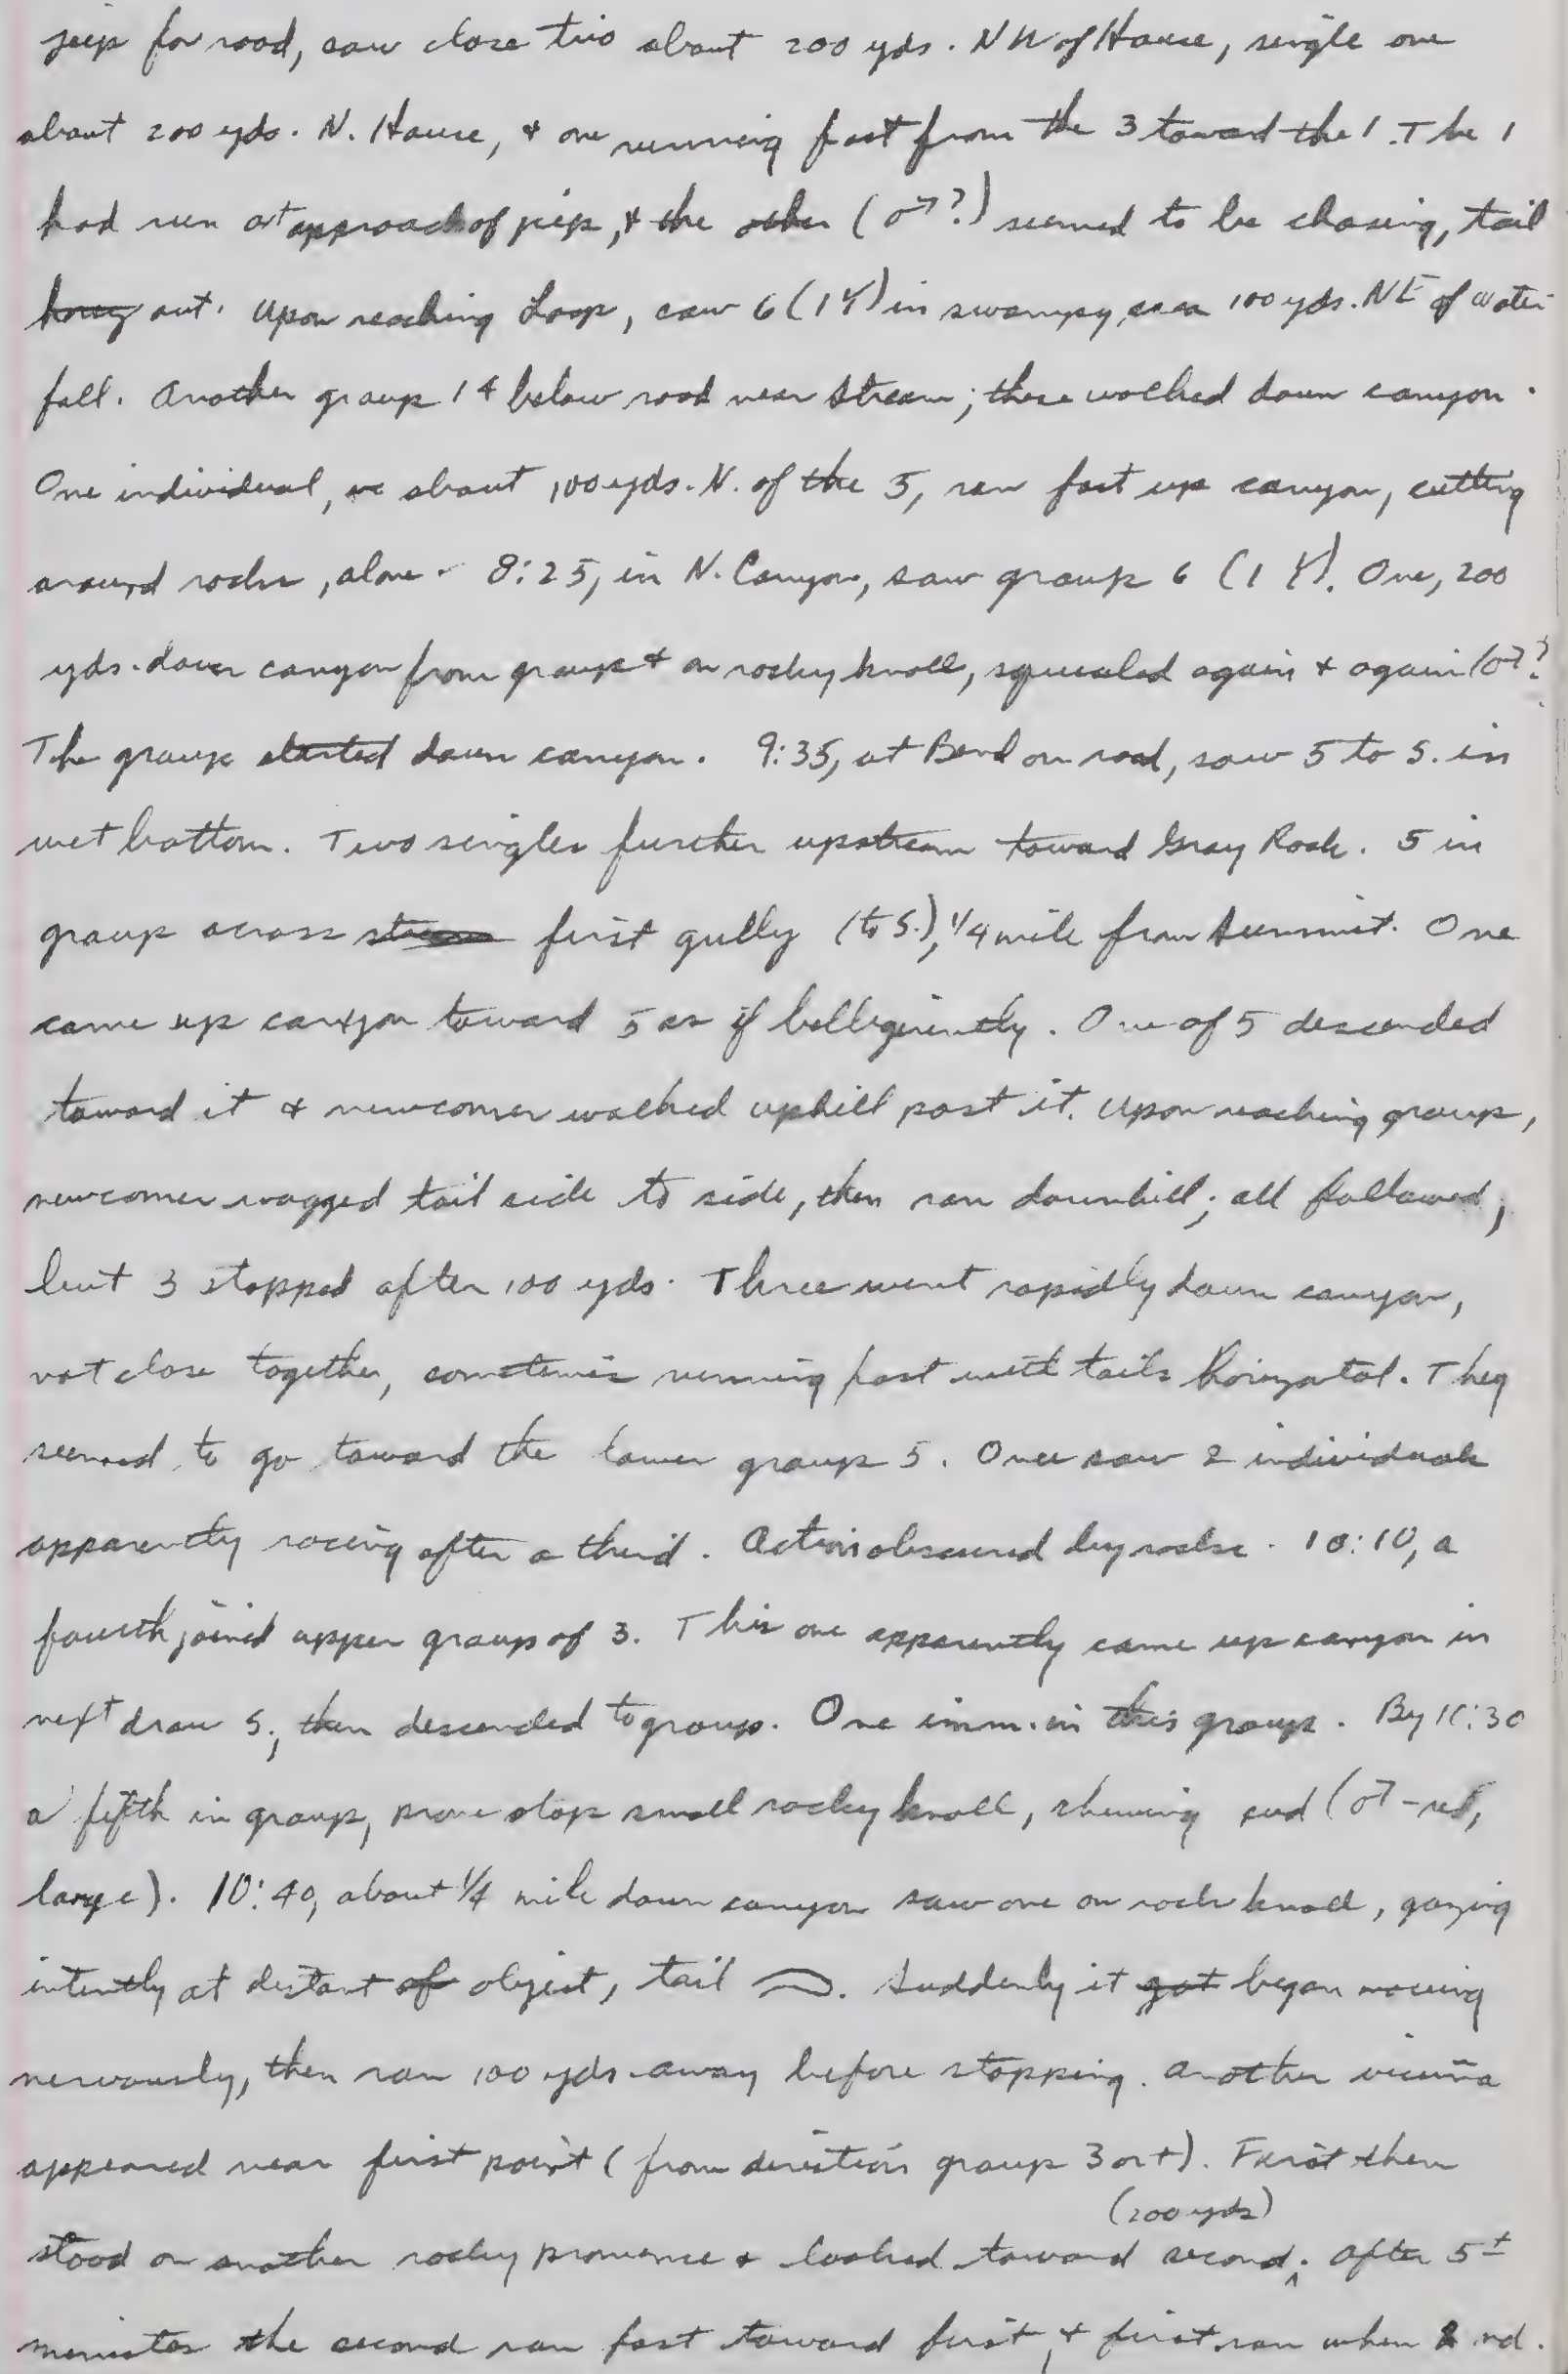 jeep for road, saw close trio about 200 yds. NW of House, single one
about 200 yds. N. House, & one running fast from the 3 toward the 1. The 1
had run at approach of jeep, & the other (♂?) seemed to be chasing, tail
out. Upon reaching Loop, saw 6 (1Y) in swampy area 100 yds. NE of water
fall. Another group 14 below road near stream; these walked down canyon.
One individual, about 100 yds. N. of the 5, ran fast up canyon, cutting
around rocks, alone. 8:25, in N. Canyon, saw group 6 (1 Y). One, 200
yds. down canyon from group & on rocky knoll, squealed again & again (♂?
The group started down canyon. 9:35, at Bend on road, saw 5 to S. in
wet bottom. Two singles further upstream toward Gray Rock. 5 in
group across stream first gully (to S.), 1/4 mile from Summit. One
came up canyon toward 5 as if belligerently. One of 5 descended
toward it & newcomer walked uphill past it. Upon reaching group,
newcomer wagged tail side to side, then ran downhill; all followed,
but 3 stopped after 100 yds. Three went rapidly down canyon,
not close together, sometimes running fast with tails horizontal. They
seemed to go toward the lower group 5. Once saw 2 individuals
apparently racing after a third. Action obscured by rocks. 10:10, a
fourth joined upper group of 3. This one apparently came up canyon in
next draw S., then descended to group. One imm. in this group. By 10:30
a fifth in group, prone atop small rocky knoll, chewing cud (♂ - red,
large). 10:40, about 1/4 mile down canyon saw one on rock knoll, gazing
intently at distant of object, tail ⌒. Suddenly it got began moving
nervously, then ran 100 yds. away before stopping. Another vicuña
appeared near first point (from direction group 3 or +). First then
(200 yds)
stood on another rocky prominence & looked toward second. After 5±
minutes the second ran fast toward first, & first ran when 2nd.